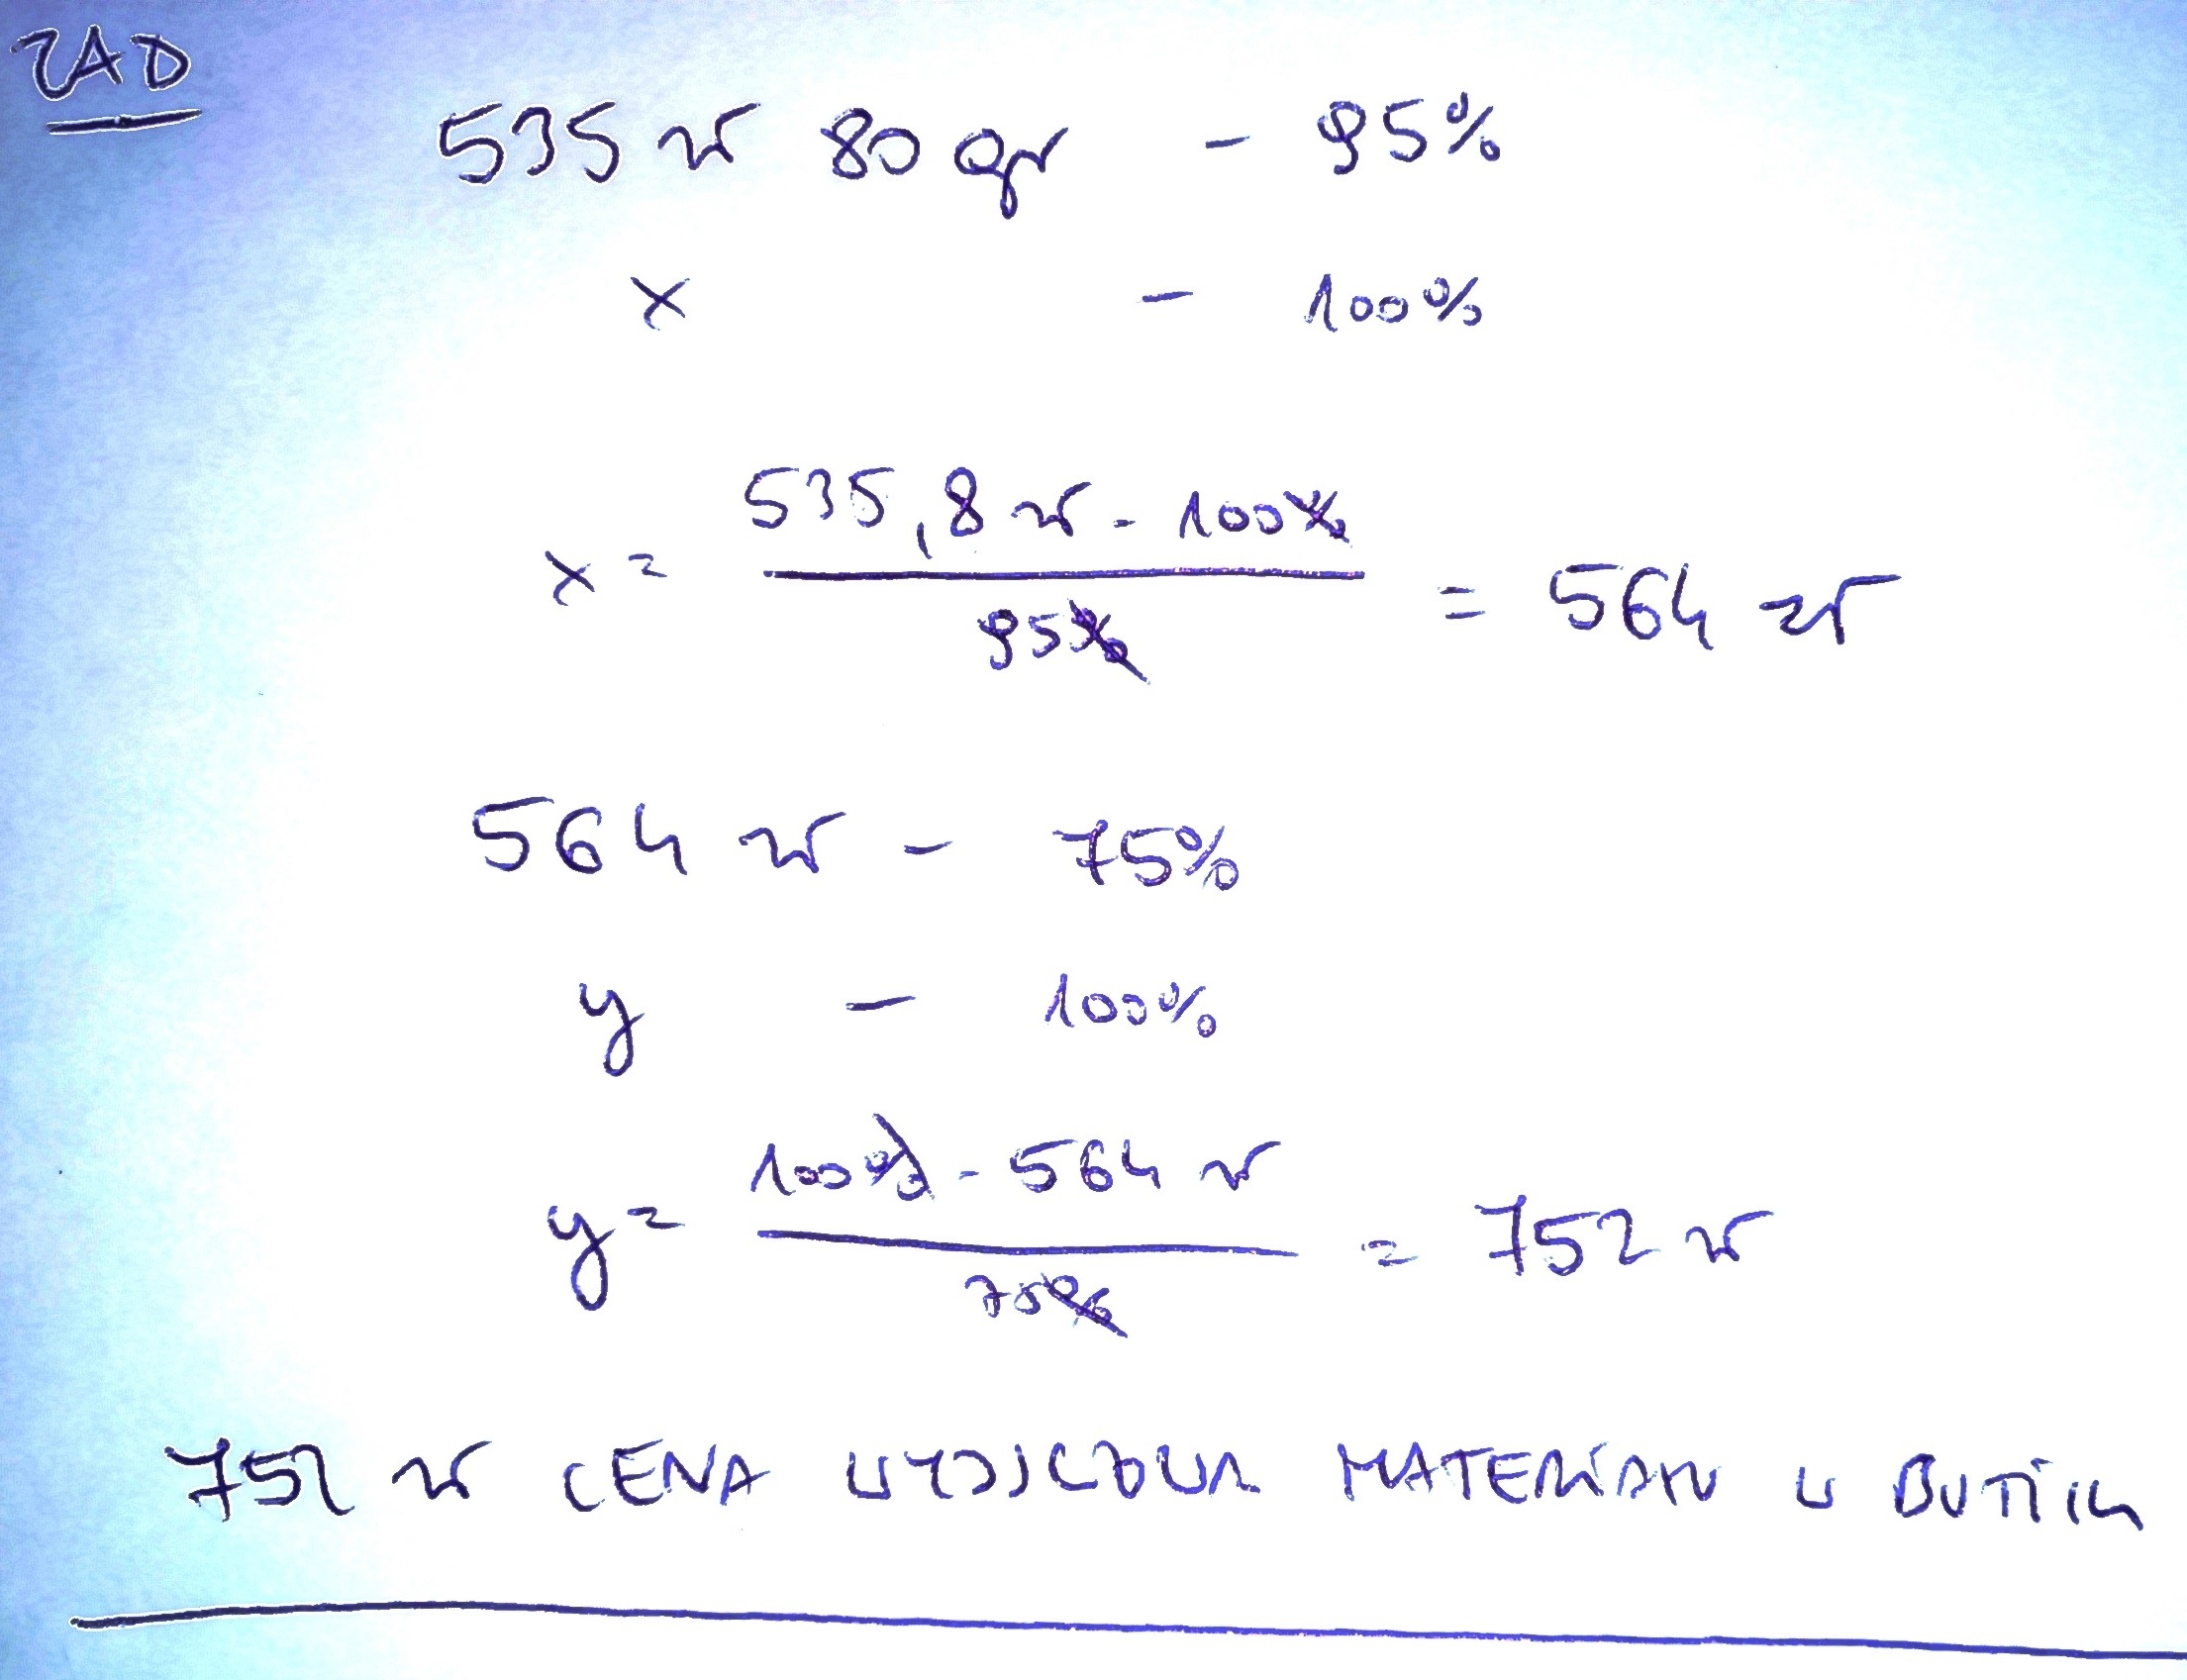 ZAD
535 zł 80 gr - 95%
x - 100%
x = 535,8 zł · 100% / 95% = 564 zł
564 zł - 75%
y - 100%
y = 100% · 564 zł / 75% = 752 zł
752 zł CENA MATERIAŁU W BUTIKU